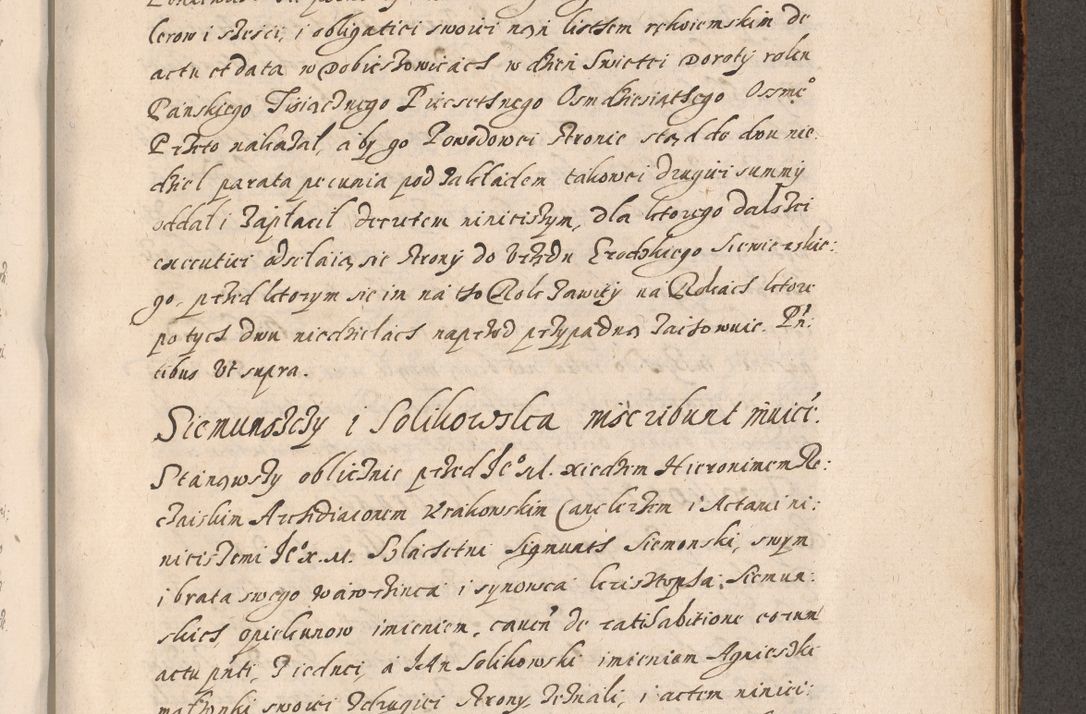 lerow i sześci, i obligatiei swoiei nań listem rękoiemskim de
actu et data w Dobieszowicach w dzień Swietei Doroty roku
Pańskiego Tisiącznego Piecsetnego Osmdziesiąthego Osmo
Przeto nakazał, aby go Powodowei stronie stąd do dwu nie
dziel parata pecunia pod zakładem takowei drugiei summy
oddal i zapłacil decretem ninieiszym, dla ktorego dalszei
executiei odsełaią się strony do Vrzędu Grodzkiego Siewierskie:
go, przed ktorym sie im na to Rok zawity na Rokach ktore
po tych dwu niedzielach naprzod przypadną zachowuie. Pn:
tibus Vt supra.
Siemunszczy i Solikowska inscribunt inuicē.
Stanąwszy oblicznie przed Je° M. xiedzem Hieronimem Re:
czaiskim Archidiaconem Krakowskim Canclerzem i Actami ni:
nieiszemi Je° X. M. Szlachetni Sigmunth Siemonski, swym
i brata swego Wawrzinca i synowca Krzisztopha Siemun:
skich, opiekunow imieniem, caueń de ratihabitione eorum
actu pnti, z iednei, a Jan Solikowski imieniem Agnieszki
małżonki swoiei z drugiei strony zeznali, i actem niniei: